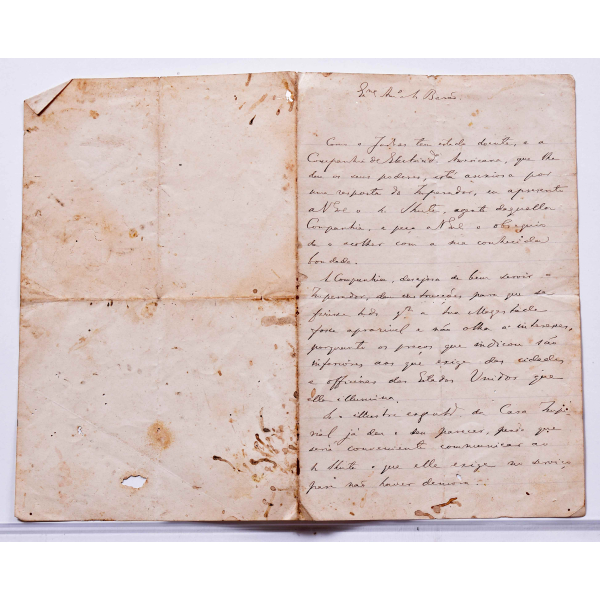 Barão
Como o tem estado doente, e a
Companhia de Americana, que lhe
deu os seus poderes, está anciosa por
uma resposta do Imperador, eu apresento
a V o Sr. agente daquella
Companhia, e peço a V o obsequio
de o acolher com a sua conhecida
bondade.
A Companhia, desejosa de bem servir o
Imperador, deu instrucções para que se
tudo a Sua Magestade
fosse aprasivel e não olha a interesses,
porquanto os preços que indicou são
inferiores aos que exige das cidades
e officinas dos Estados Unidos que
ella illumina.
O illustre da Casa Impe
rial já deu o seu parecer, que
será conveniente communicar ao
Sr. o que elle exige no serviço
para não haver demora.